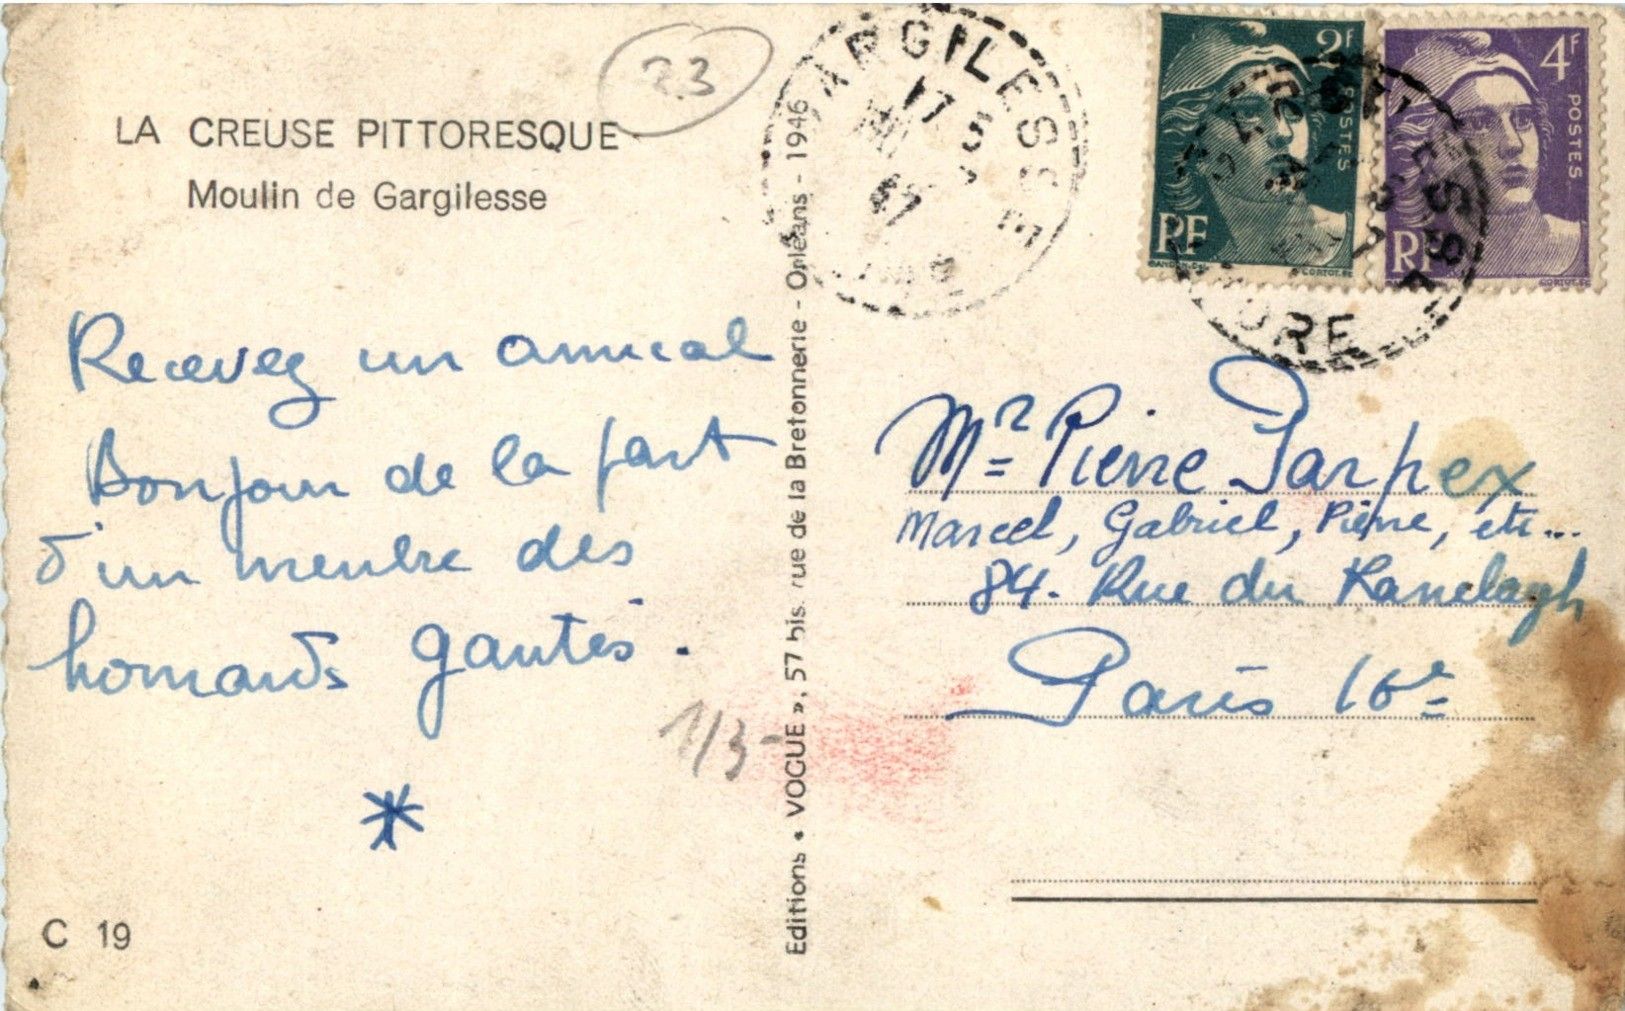 LA CREUSE PITTORESQUE
Moulin de Gargilesse
23
Recevez un amical
Bonjour de la part
d'un membre des
homards gantés.
*
1/3-
C 19
Editions « VOGUE », 57 bis, rue de la Bretonnerie - Orléans - 1946
GARGILESSE
17
5
47
2F
POSTES
RF
GANDON
CORTOT. SC
4F
POSTES
RF
CORTOT. SC
INDRE
Mr Pierre Parpex
Marcel, Gabriel, Pierre, etc...
84. Rue du Ranelagh
Paris 16e